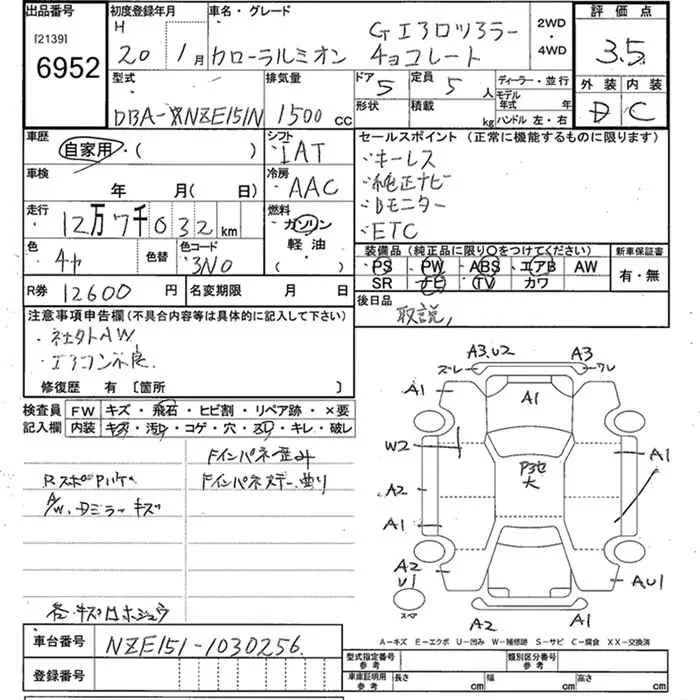 出品番号
[2139]
6952
初度登録年月
H 20 1月
車名・グレード
カローラルミオン
2WD
4WD
評価点
3.5
型式
DBA-NZE151N
排気量
1500 cc
ドア 5
定員 5 人
形状
積載 kg
ディーラー・並行
モデル年式 年
ハンドル 左・右
外装 内装
D C
車歴
自家用・( )
シフト
IAT
車検
年 月( 日)
冷房
AAC
走行
12万7千032km
燃料
ガソリン
軽油
( )
色
色替
色コード
3N0
R券 12600 円
名変期限 月 日
セールスポイント(正常に機能するものに限ります)
・キーレス
・純正ナビ
・Bモニター
・ETC
装備品(純正品に限り○をつけてください)
・PS ・PW ・ABS ・エアB AW
SR ナビ TV カワ
新車保証書
有・無
後日品
取説
注意事項申告欄(不具合内容等は具体的に記入して下さい)
・社外AW
・エアコン不良
修復歴 有 〔箇所 〕
検査員記入欄
FW キズ・飛石・ヒビ割・リペア跡・×要
内装 キズ・汚れ・コゲ・穴・ヌリ・キレ・破レ
Fインパネ歪み
Fインパネステー曲り
A/W、Dミラーキズ
車台番号
NZE151-1030256
登録番号
A3.U2
A3
ズレ
ワレ
A1
A1
W2
A1
P3セ
大
A2
A1
A2
U1
AU1
スペア
A2
A1
A-キズ E-エクボ U-凹み W-補修跡 S-サビ C-腐食 XX-交換済
型式指定番号 参考
類別区分番号 参考
車庫証明用 参考
長さ cm
幅 cm
高さ cm